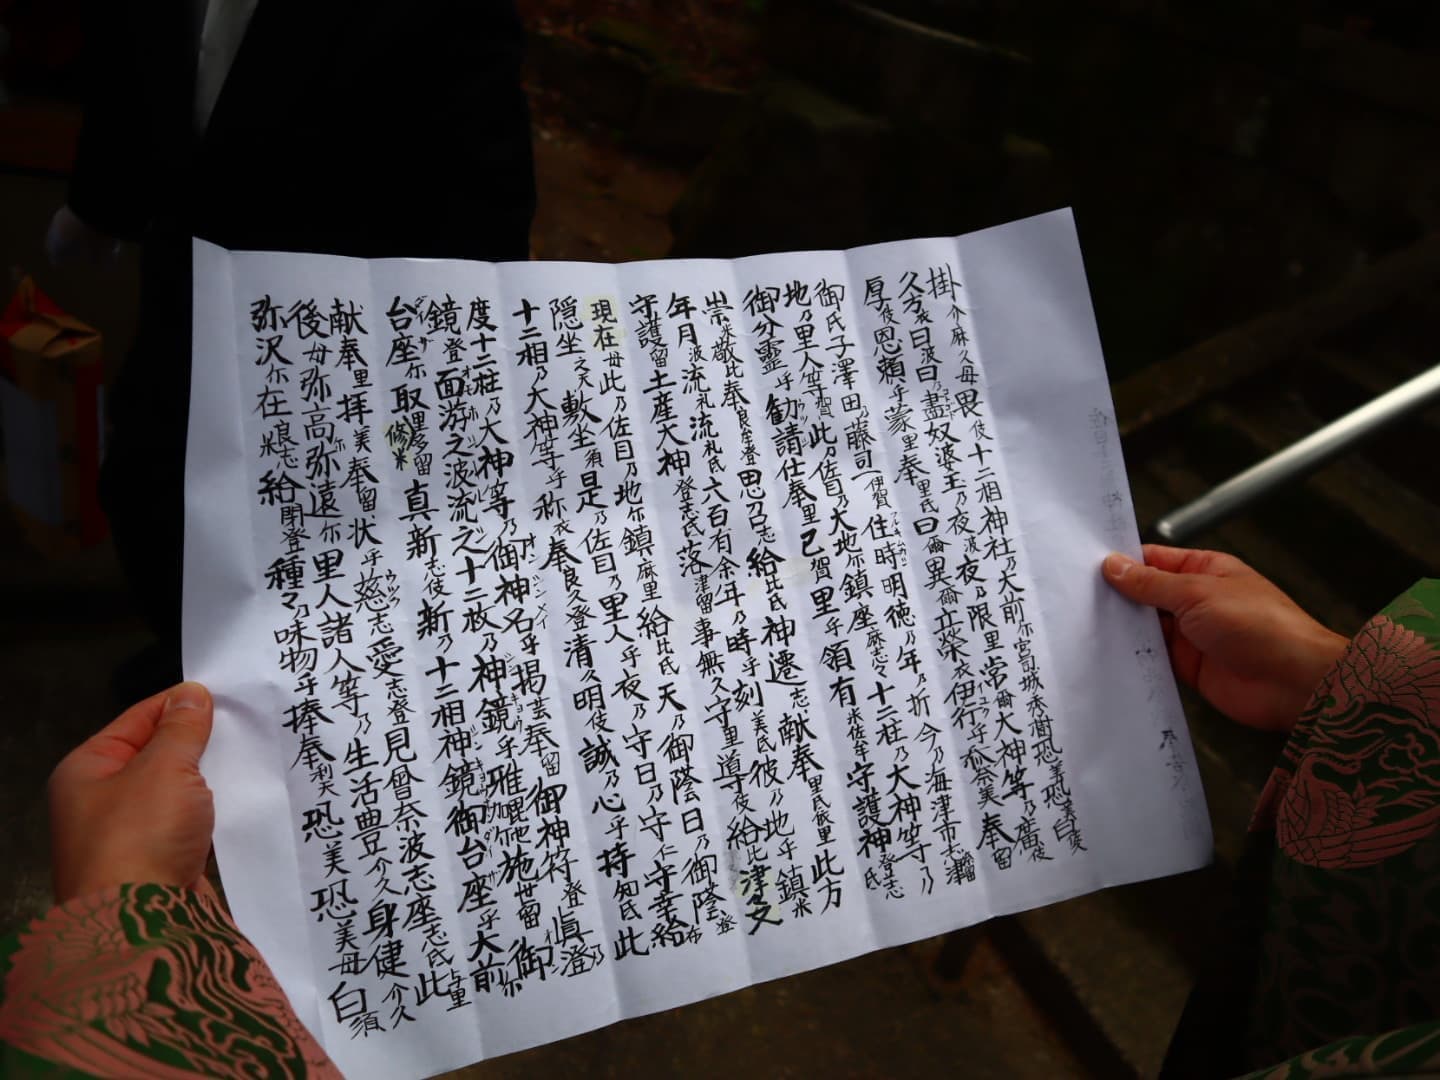 掛介麻久母畏伎十二相神社乃大前尓宮司城秀樹恐美恐美白須
久方我曰波曰乃盡奴婆玉乃夜波夜乃限里常爾大神等乃廣伎
厚伎恩頼乎蒙里奉里氏曰爾異爾立栄衣伊行乎奈美奉留
御氏子澤田乃藤司伊賀住時明徳乃年乃折今乃海津市志津
地乃里人等賀此乃佐目乃大地尓鎮座麻志々十二柱乃大神等乃
御分霊乎勧請仕奉里己賀里乎領有米佐牟守護神登志氏
崇米敬比奉良牟登思召志給比氏神遷志献奉里氏依里此方
年月波流礼流礼氏六百有余年乃時乎刻美氏彼乃地乎鎮米
守護留土産大神登志氏落津留事無久守里導伎給比津々
現在母此乃佐目乃地尓鎮麻里給比氏天乃御蔭日乃御蔭登
隠坐之天敷坐須是乃佐目乃里人乎夜乃守日乃守仁守幸給布
十二相乃大神等乎称衣奉良久登清久明伎誠乃心乎持知氏此
度十二柱乃大神等乃御神名乎掲芸奉留御神符登眞澄乃
鏡登面游之波流之十二枚乃神鏡乎雅毘他施世留御
台座尓取里多留修米真新志伎新乃十二相神鏡御台座乎大前尓
献奉里拝美奉留状乎慈志愛志登見曾奈波志座志氏此与里
後母弥高尓弥遠尓里人諸人等乃生活豊介久身健介久
弥沢尓在良志米給閉登種々乃味物乎捧奉利天恐美恐美母白須